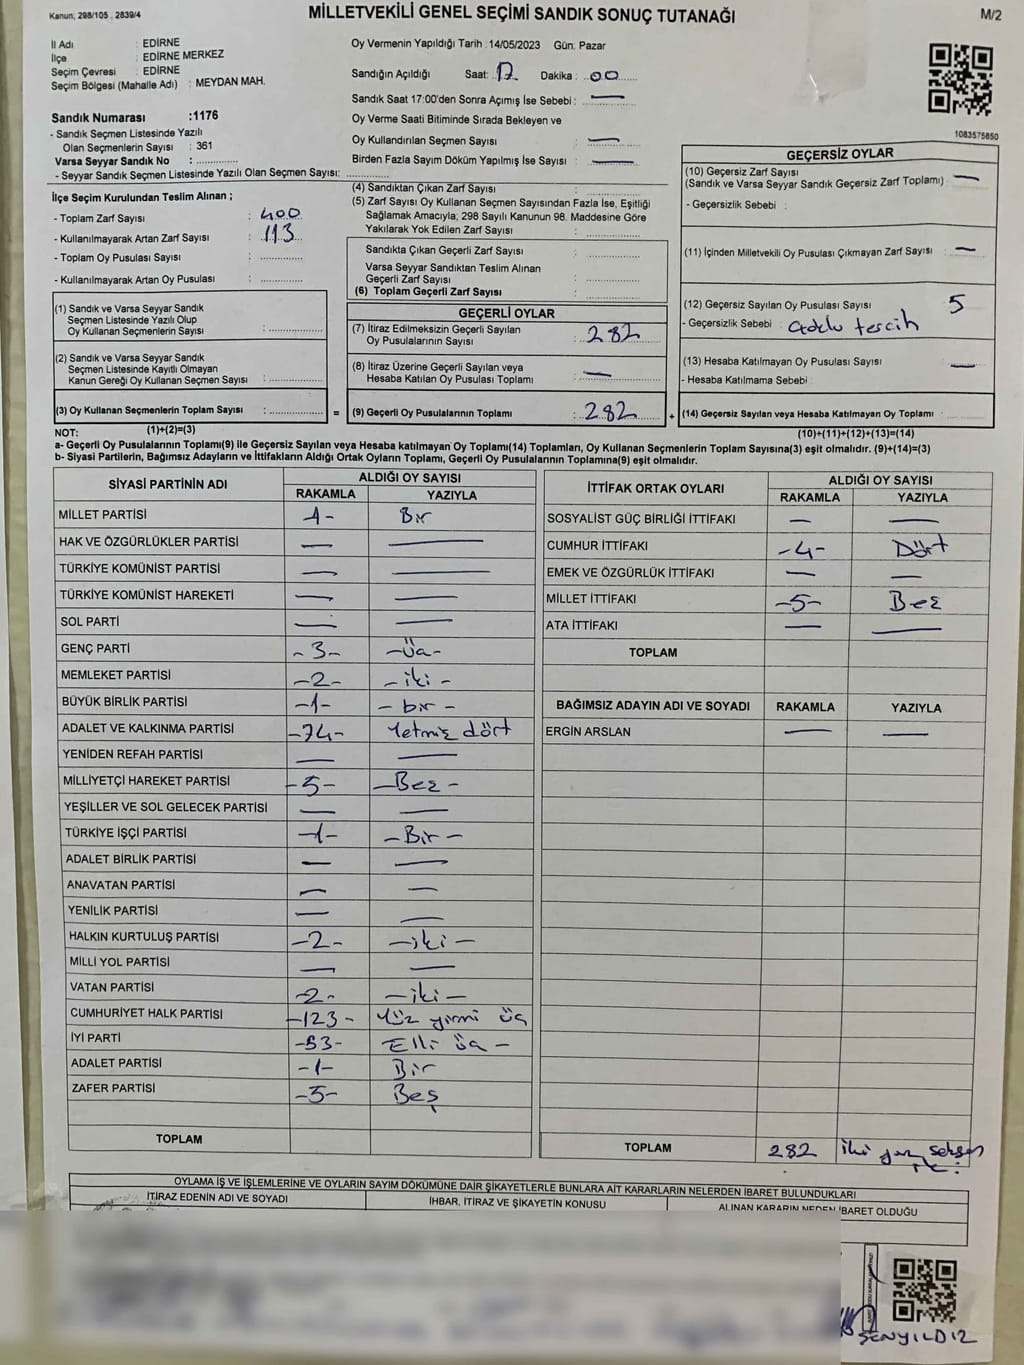 Kanun, 298/105 , 2839/4
MİLLETVEKİLİ GENEL SEÇİMİ SANDIK SONUÇ TUTANAĞI
M/2
İl Adı : EDİRNE
İlçe : EDİRNE MERKEZ
Seçim Çevresi : EDİRNE
Seçim Bölgesi (Mahalle Adı) : MEYDAN MAH.
Oy Vermenin Yapıldığı Tarih :14/05/2023 Gün: Pazar
Sandığın Açıldığı Saat: 17 Dakika : 00
Sandık Saat 17:00'den Sonra Açımış İse Sebebi : —
Oy Verme Saati Bitiminde Sırada Bekleyen ve
Oy Kullandırılan Seçmen Sayısı : —
Birden Fazla Sayım Döküm Yapılmış İse Sayısı : —
1083575850
Sandık Numarası :1176
- Sandık Seçmen Listesinde Yazılı
Olan Seçmenlerin Sayısı : 361
Varsa Seyyar Sandık No : ..............
- Seyyar Sandık Seçmen Listesinde Yazılı Olan Seçmen Sayısı: ..............
İlçe Seçim Kurulundan Teslim Alınan ;
- Toplam Zarf Sayısı : 400
- Kullanılmayarak Artan Zarf Sayısı : 113
- Toplam Oy Pusulası Sayısı : ..............
- Kullanılmayarak Artan Oy Pusulası : ..............
(1) Sandık ve Varsa Seyyar Sandık
Seçmen Listesinde Yazılı Olup
Oy Kullanan Seçmenlerin Sayısı : ..............
(2) Sandık ve Varsa Seyyar Sandık
Seçmen Listesinde Kayıtlı Olmayan
Kanun Gereği Oy Kullanan Seçmen Sayısı : ..............
(3) Oy Kullanan Seçmenlerin Toplam Sayısı : .............. =
(1)+(2)=(3)
(4) Sandıktan Çıkan Zarf Sayısı : ..............
(5) Zarf Sayısı Oy Kullanan Seçmen Sayısından Fazla İse, Eşitliği
Sağlamak Amacıyla; 298 Sayılı Kanunun 98. Maddesine Göre
Yakılarak Yok Edilen Zarf Sayısı : ..............
Sandıkta Çıkan Geçerli Zarf Sayısı : ..............
Varsa Seyyar Sandıktan Teslim Alınan
Geçerli Zarf Sayısı : ..............
(6) Toplam Geçerli Zarf Sayısı : ..............
GEÇERLİ OYLAR
(7) İtiraz Edilmeksizin Geçerli Sayılan
Oy Pusulalarının Sayısı : 282
(8) İtiraz Üzerine Geçerli Sayılan veya
Hesaba Katılan Oy Pusulası Toplamı : —
(9) Geçerli Oy Pusulalarının Toplamı : 282 +
GEÇERSİZ OYLAR
(10) Geçersiz Zarf Sayısı
(Sandık ve Varsa Seyyar Sandık Geçersiz Zarf Toplamı) : —
- Geçersizlik Sebebi :
(11) İçinden Milletvekili Oy Pusulası Çıkmayan Zarf Sayısı : —
(12) Geçersiz Sayılan Oy Pusulası Sayısı 5
- Geçersizlik Sebebi : tercih
(13) Hesaba Katılmayan Oy Pusulası Sayısı : —
- Hesaba Katılmama Sebebi :
(14) Geçersiz Sayılan veya Hesaba Katılmayan Oy Toplamı : ..............
(10)+(11)+(12)+(13)=(14)
NOT:
a- Geçerli Oy Pusulalarının Toplamı(9) ile Geçersiz Sayılan veya Hesaba katılmayan Oy Toplamı(14) Toplamları, Oy Kullanan Seçmenlerin Toplam Sayısına(3) eşit olmalıdır. (9)+(14)=(3)
b- Siyasi Partilerin, Bağımsız Adayların ve İttifakların Aldığı Ortak Oyların Toplamı, Geçerli Oy Pusulalarının Toplamına(9) eşit olmalıdır.
SİYASİ PARTİNİN ADI ALDIĞI OY SAYISI
RAKAMLA YAZIYLA
MİLLET PARTİSİ -1- Bir
HAK VE ÖZGÜRLÜKLER PARTİSİ — —
TÜRKİYE KOMÜNİST PARTİSİ — —
TÜRKİYE KOMÜNİST HAREKETİ — —
SOL PARTİ — —
GENÇ PARTİ -3- -Üç-
MEMLEKET PARTİSİ -2- -iki-
BÜYÜK BİRLİK PARTİSİ -1- -bir-
ADALET VE KALKINMA PARTİSİ -74- Yetmiş dört
YENİDEN REFAH PARTİSİ — —
MİLLİYETÇİ HAREKET PARTİSİ -5- -Beş-
YEŞİLLER VE SOL GELECEK PARTİSİ — —
TÜRKİYE İŞÇİ PARTİSİ -1- -Bir-
ADALET BİRLİK PARTİSİ — —
ANAVATAN PARTİSİ — —
YENİLİK PARTİSİ — —
HALKIN KURTULUŞ PARTİSİ -2- -iki-
MİLLİ YOL PARTİSİ — —
VATAN PARTİSİ -2- -iki-
CUMHURİYET HALK PARTİSİ -123- Yüz yirmi üç
İYİ PARTİ -53- Elli üç -
ADALET PARTİSİ -1- Bir
ZAFER PARTİSİ -5- Beş
TOPLAM
İTTİFAK ORTAK OYLARI ALDIĞI OY SAYISI
RAKAMLA YAZIYLA
SOSYALİST GÜÇ BİRLİĞİ İTTİFAKI — —
CUMHUR İTTİFAKI -4- Dört
EMEK VE ÖZGÜRLÜK İTTİFAKI — —
MİLLET İTTİFAKI -5- Beş
ATA İTTİFAKI — —
TOPLAM
BAĞIMSIZ ADAYIN ADI VE SOYADI RAKAMLA YAZIYLA
ERGİN ARSLAN — —
TOPLAM 282 iki yüz seksen
OYLAMA İŞ VE İŞLEMLERİNE VE OYLARIN SAYIM DÖKÜMÜNE DAİR ŞİKAYETLERLE BUNLARA AİT KARARLARIN NELERDEN İBARET BULUNDUKLARI
İTİRAZ EDENİN ADI VE SOYADI İHBAR, İTİRAZ VE ŞİKAYETİN KONUSU ALINAN KARARIN NEDEN İBARET OLDUĞU
ŞENYILDIZ